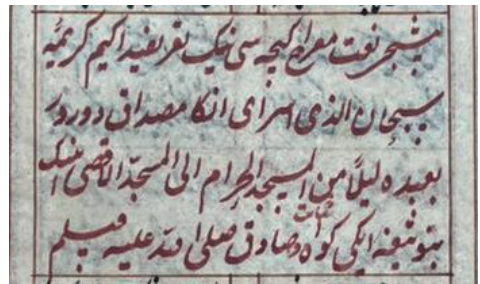 نعت معراج کیچه سی نینک تعریفیدا کیم کریمهٔ
سبحان الذی اسرای انکا مصداق دورور
بعبده لیلاً من المسجد الحرام الی المسجد الاقصی انینک
ثبوتیغه ایکی کواه صادق صلی الله علیه وسلم